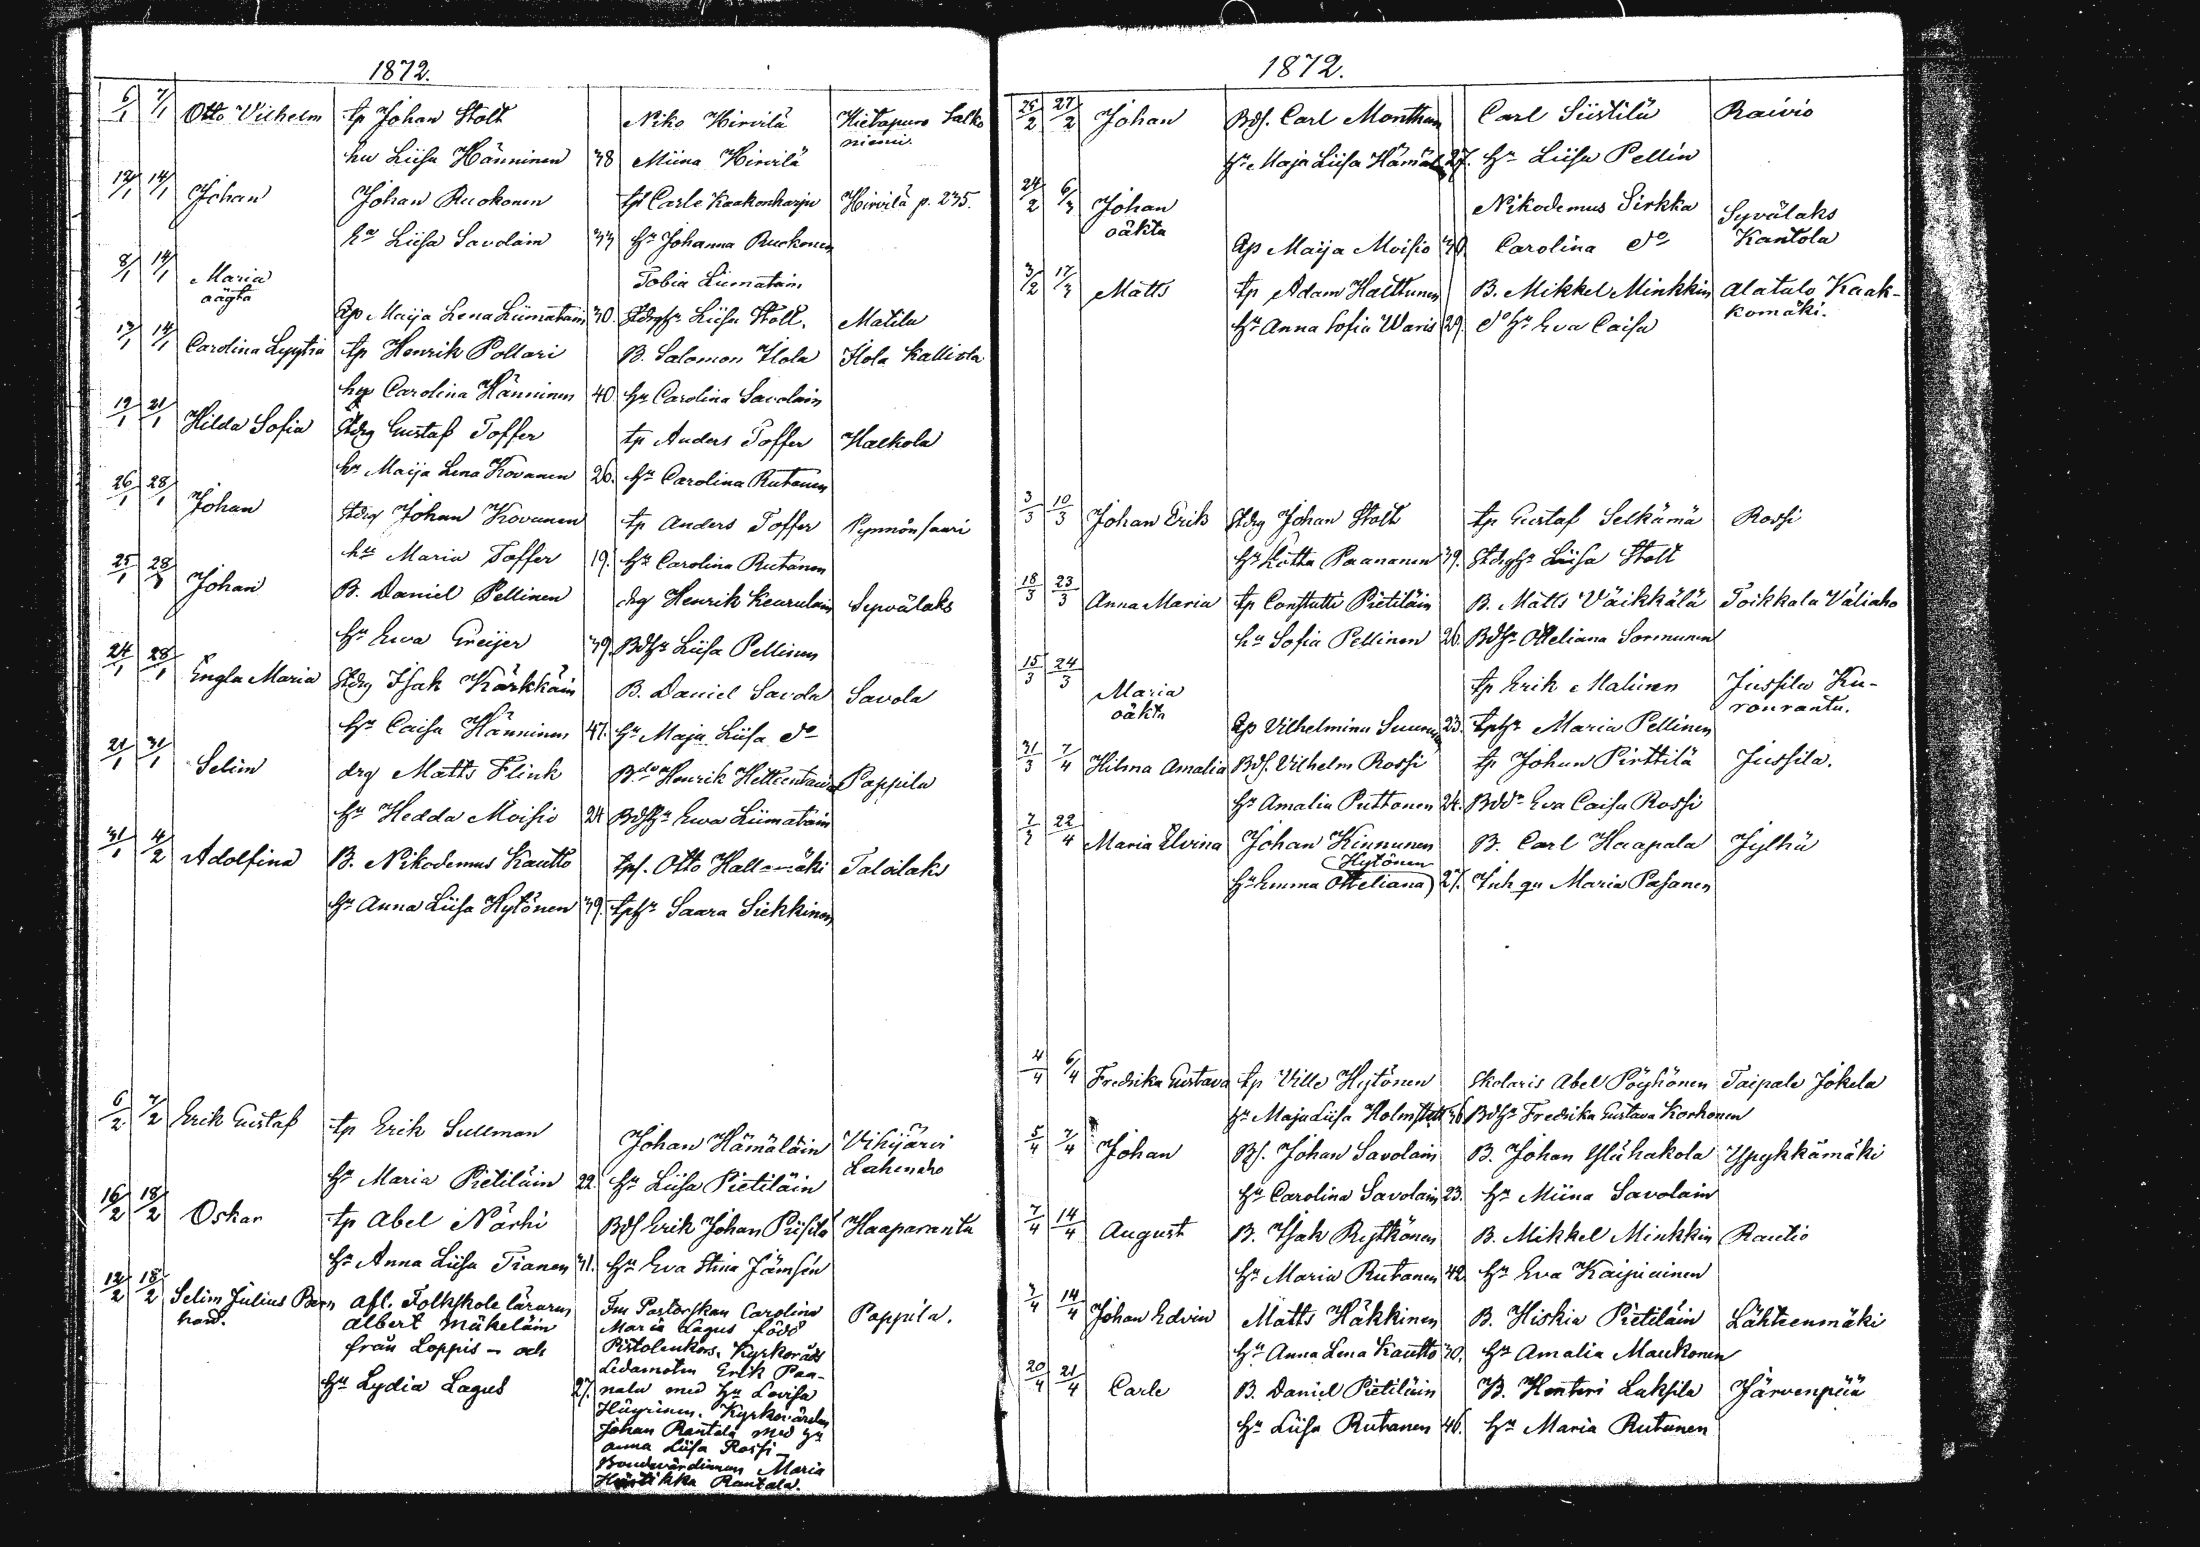 1872.
6/1 7/1 Otto Vilhelm tp Johan Stolt Niko Hirvilä Hietapuro Salko
niemi.
hu Liisa Hänninen 38 Miina Hirvilä
12/1 14/1 Johan Johan Ruokonen tp Carle Kaakonharju Hirvilä p. 235.
hu Liisa Savolain 33 hu Johanna Ruokonen
8/1 14/1 Maria Tobia Liimatain
oägta
Qp Maija Lena Liimatain 30. Stdrghu Liisa Stolt. Matila
13/1 14/1 Carolina Lyytia tp Henrik Pollari B. Salomon Ilola Ilola Kallisla
hu Carolina Hänninen 40 hu Carolina Savolain
19/1 21/1 Hilda Sofia Stdrg Gustaf Toffer tp Anders Toffer Haekola
hu Maija Lena Kovanen 26. hu Carolina Rutanen
26/1 28/1 Johan Stdrg Johan Kovanen tp Anders Toffer Pynnönsaari
hu Maria Toffer 19. hu Carolina Rutanen
25/1 28/1 Johan B. Daniel Pellinen drg Henrik Keurulain Syvälaks
hu Ewa Greijer 39. Bdhu Liisa Pellinen
24/1 28/1 Engla Maria Stdrg Isak Kärkkäin B. Daniel Savola Savola
hu Caisa Hänninen 47. hu Maja Liisa do
21/1 31/1 Selim drg Matts Flink Henrik Pappila
hu Hedda Moisio 24 Bdhu Ewa Liimatain
31/1 4/2 Adolfina B. Nikodemus Kautto tpf. Otto Hallamäki Taloilaks
hu Anna Liisa Hytönen 39. tphu Saara Siekkinen
6/2 7/2 Erik Gustaf tp Erik Sullman Johan Hämäläin Vihijärvi
hu Maria Pietiläin 22. hu Liisa Pietiläin Lahenaho
16/2 18/2 Oskar tp Abel Närhi Bdf Erik Johan Piisilä Haaparanta
hu Anna Liisa Tianen 31. hu Eva Stina Jämsén
12/2 18/2 Selim Julius Bern afl. Folkskole läraren Fru Pastorskan Carolina Pappila.
hard. Albert Mäkeläin Maria Lagus född
från Loppis – och Pistolenkors. Kyrkoråds
Ledamoten Erik Paa-
hu Lydia Lagus 27. nala med hu Lovisa
Häyrinen. Kyrkovärden
Johan Rantala med hu
Anna Liisa Rossi –
Bondevärdinnan Maria
Rantala.
1872.
25/2 27/2 Johan Bdf. Carl Monthan Carl Siistilä Raivio
hu Maja Liisa Hämäl 27. hu Liisa Pellin
24/2 6/3 Johan Nikodemus Sirkka Syvälaks
oäkta Qp Maija Moisio 39. Carolina do Kantola
3/2 17/3 Matts tp Adam Halttunen B. Mikkel Minkkin Alatalo Kaak-
komäki.
hu Anna Sofia Waris 29. do hu Eva Caisa
3/3 10/3 Johan Erik Stdrg Johan Stolt tp Gustaf Selkämä Rossi
hu Lotta Paananen 39. Stdrghu Liisa Stolt
18/3 23/3 Anna Maria tp Constutti Pietiläin B. Matts Väikkälä Toikkala Väliaho
hu Sofia Pellinen 26. Bdhu Otteliana Sormunen
15/3 24/3 Maria tp Erik Malinen Jussila Ku-
oäkta ronranta.
Qp Vilhelmina 23. tphu Maria Pellinen
31/3 7/4 Hilma Amalia Bdf. Vilhelm Rossi tp Johan Pirttilä Jussila.
hu Amalia Puttonen 24. Bddr Eva Caisa Rossi
7/3 22/4 Maria Elvina Johan Kinnunen B. Carl Haapala Jylhä
Hytönen
hu Emma Otteliana 27. Inh qu Maria Pasanen
4/4 6/4 Fredrika Gustava tp Ville Hytönen Skolaris Abel Pöyhönen Taipale Jokela
hu Maja Liisa Holmstett 36. Bdhu Fredrika Gustava Korhonen
5/4 7/4 Johan Bf. Johan Savolain B. Johan Ylähakola Ypykkämäki
hu Carolina Savolain 23. hu Miina Savolain
7/4 14/4 August B. Isak Rytkönen B. Mikkel Minkkin Rautio
hu Maria Rutanen 42. hu Eva Kaipiainen
3/4 14/4 Johan Edvin Matts Häkkinen B. Hiskia Pietiläin Lähteenmäki
hu Anna Lena Kautto 30. hu Amalia Maukonen
20/4 21/4 Carle B. Daniel Pietiläin B. Hentteri Laksila Järvenpää
hu Liisa Rutanen 46. hu Maria Rutanen